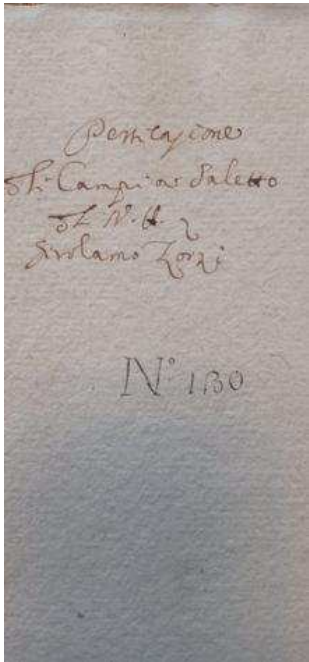 Perticazione
di Campi a Saletto
di N. H.
Girolamo Zorzi
N.º 130